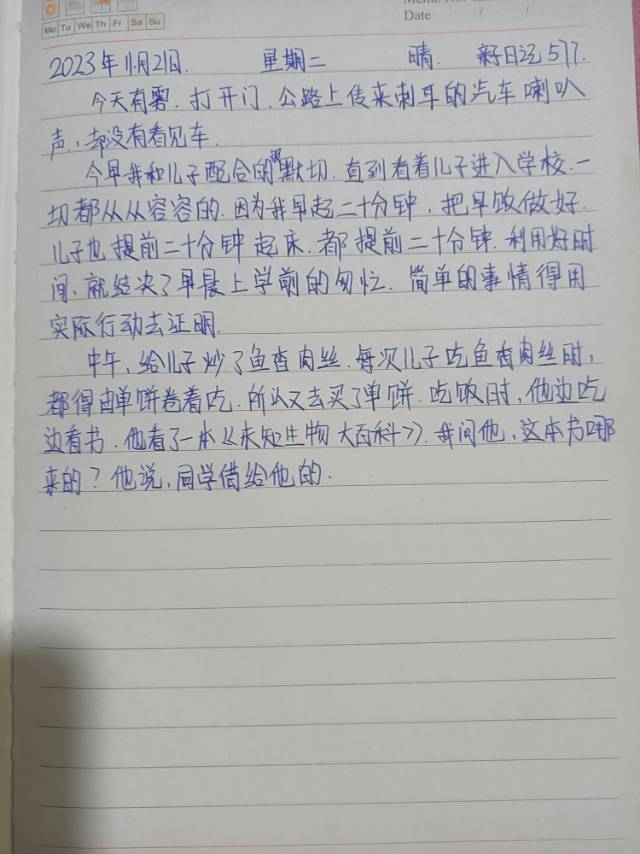 Mo Tu We Th Fr Sa Su
Date / /
2023年11月21日. 星期二 晴.
今天有雾.打开门,公路上传来刺耳的汽车喇叭
声,却没有看见车.
今早我和儿子配合的很默切.直到看着儿子进入学校.一
切都从从容容的.因为我早起二十分钟,把早饭做好.
儿子也提前二十分钟起床.都提前二十分钟.利用好时
间,就结决了早晨上学前的匆忙.简单的事情得用
实际行动去证明.
中午,给儿子炒了鱼香肉丝.每次儿子吃鱼香肉丝时,
都得由单饼卷着吃.所以又去买了单饼.吃饭时,他边吃
边看书.他看了一本《未知生物大百科》.我问他,这本书哪
来的?他说,同学借给他的.